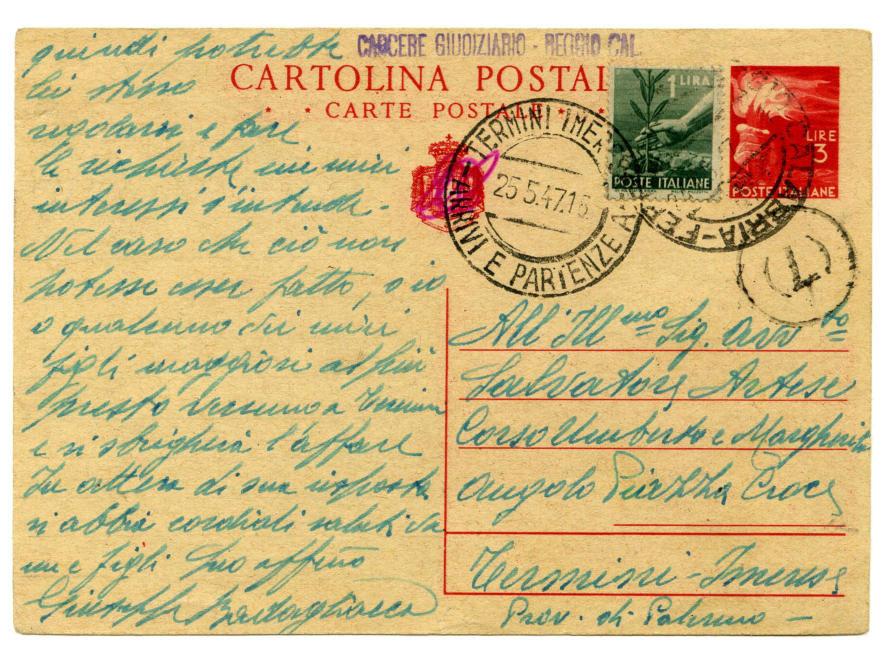 CARCERE GIUDIZIARIO - REGGIO CAL.
CARTOLINA POSTAL
CARTE POSTALE
1 LIRA
POSTE ITALIANE
LIRE
3
POSTE ITALIANE
TERMINI IMER
25.5.47.1
ARRIVI E PARTENZE
BRIA-FER
T
quindi potrebbe
lei stesso
regolarsi e fare
le richieste nei miei
interessi s'intende -
Nel caso che ciò non
potesse esser fatto, o io
o qualcuno dei miei
figli maggiori al più
presto verranno a Termini
e si sbrigherà l'affare
In attesa di sua risposta
si abbia cordiali saluti da
me e figli suo affmo
Giuseppe Badagliacca
All'Ill.mo Sig. Avv.to
Salvatore Artese
Corso Umberto e Margherita
Angolo Piazza Croce
Termini-Imerese
Prov. di Palermo -